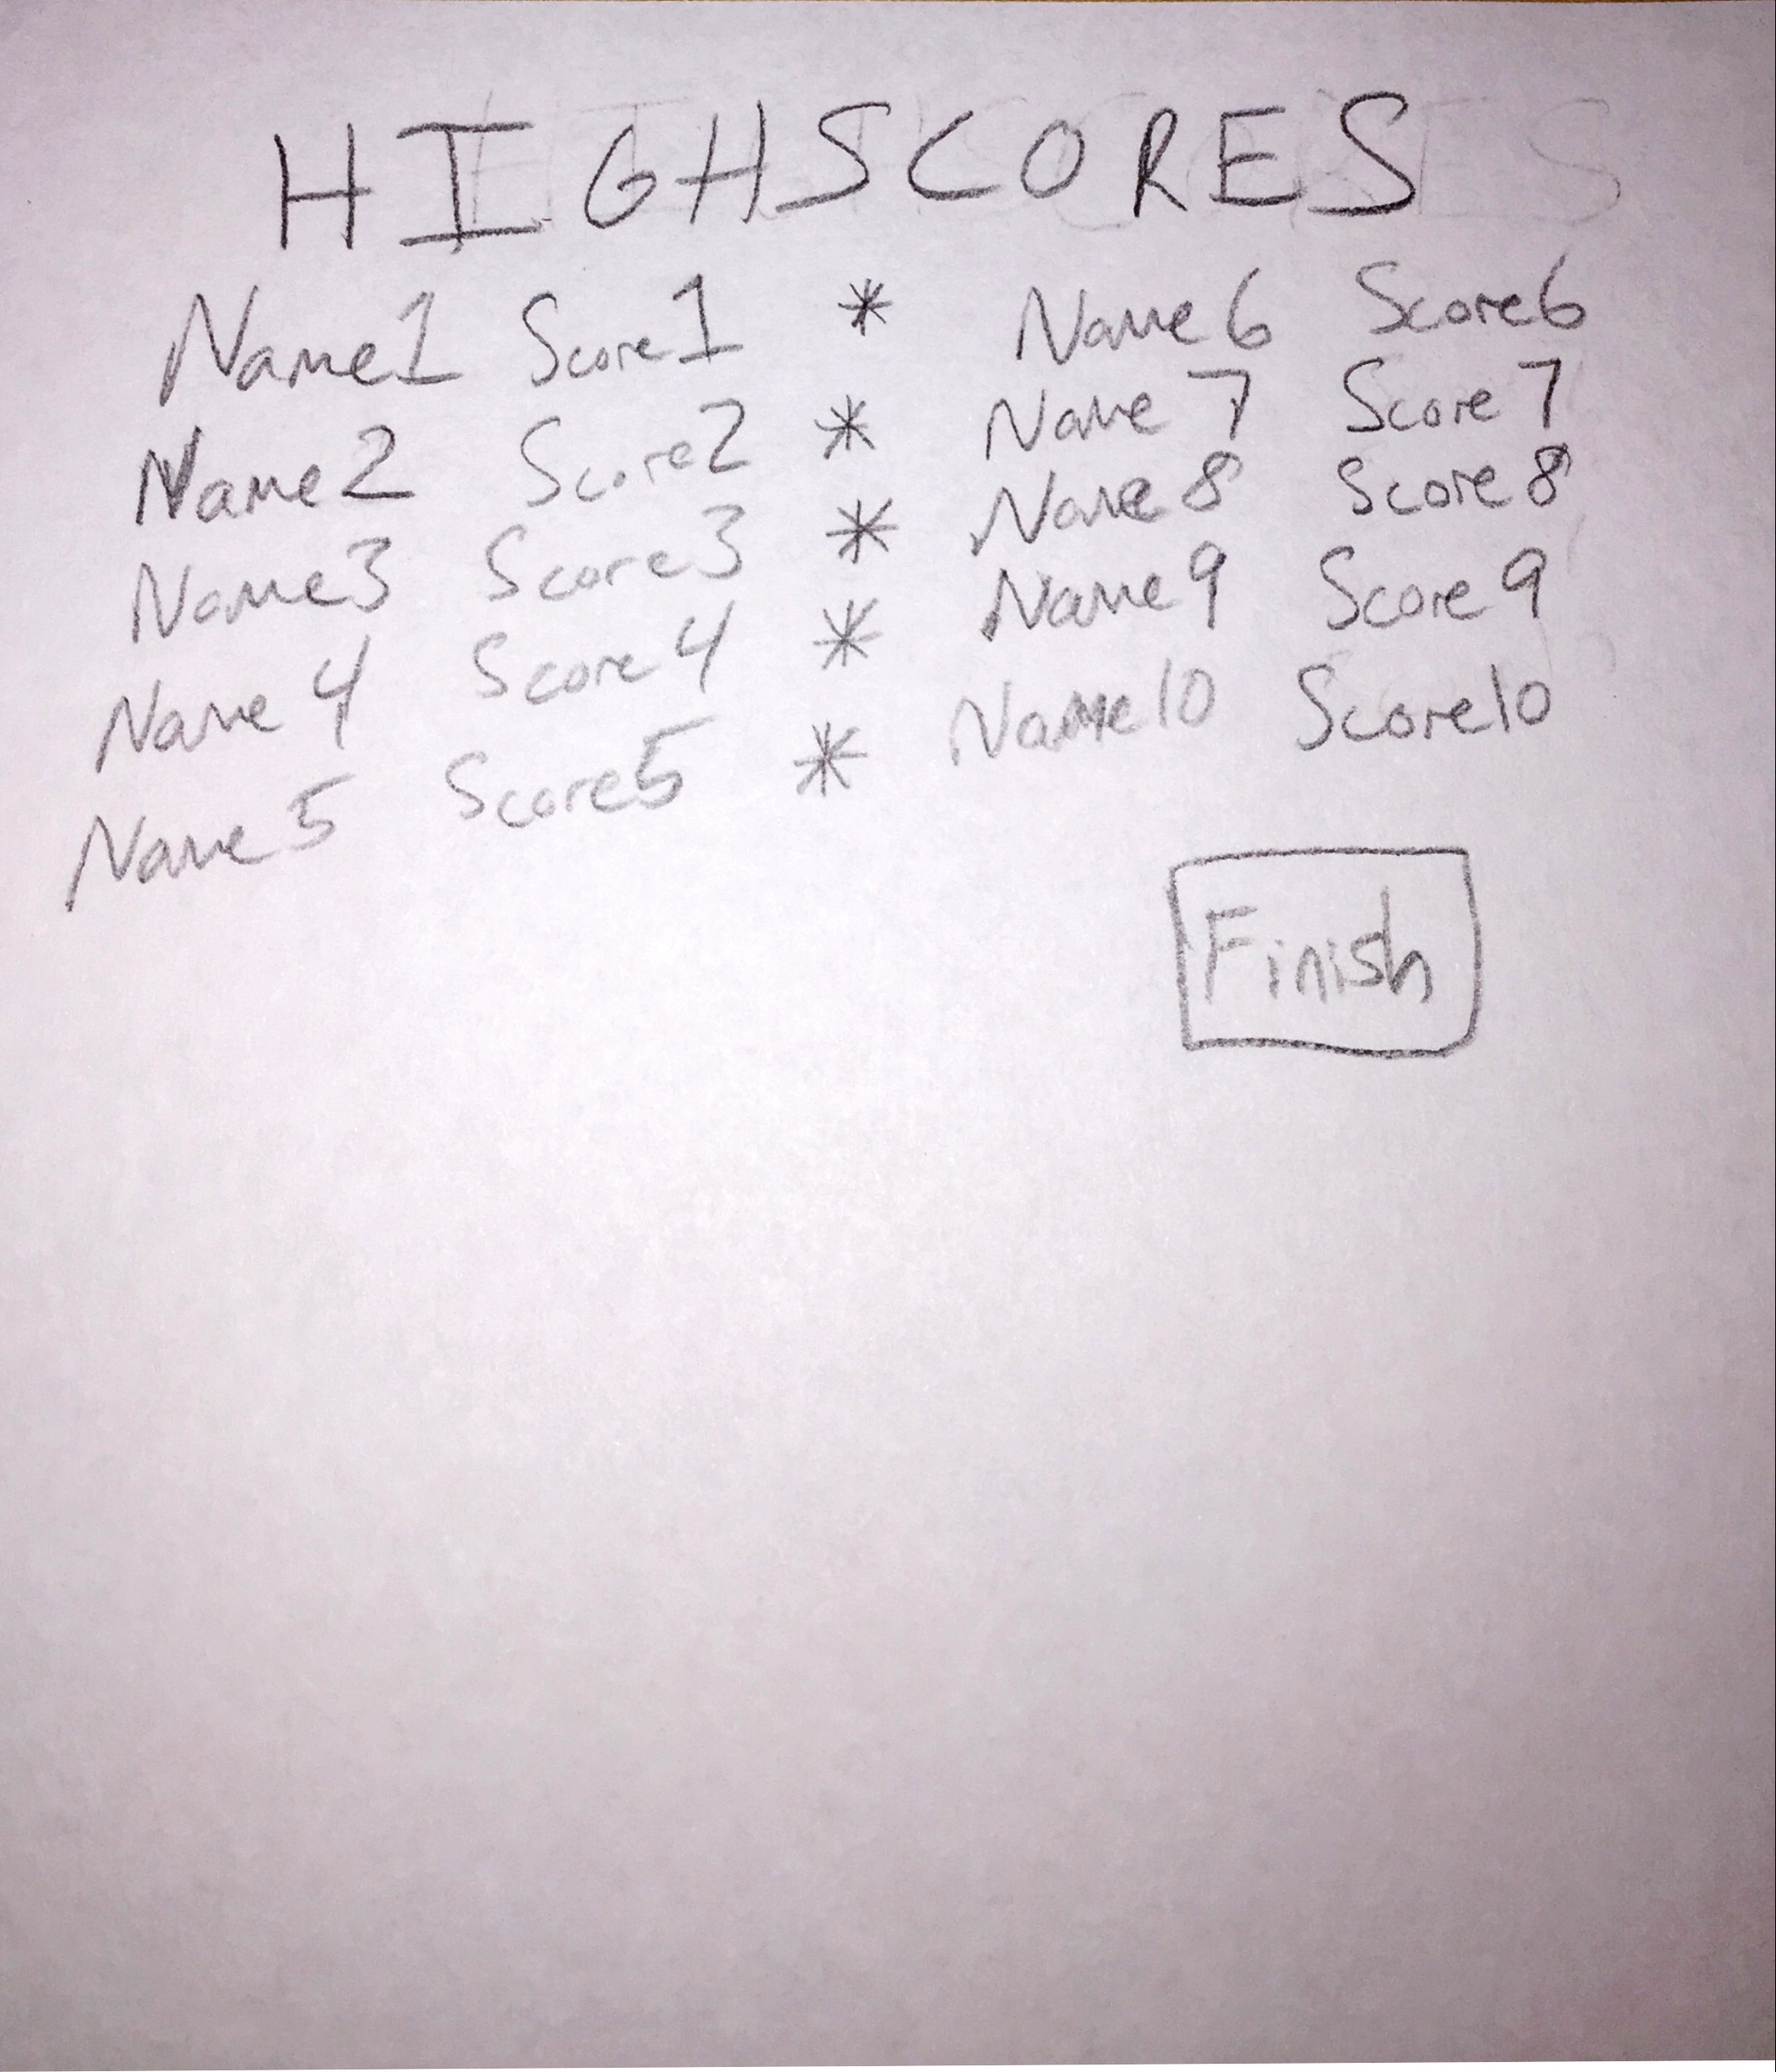 HIGHSCORES
Name1 Score1 * Name6 Score6
Name2 Score2 * Name7 Score7
Name3 Score3 * Name8 Score8
Name4 Score4 * Name9 Score9
Name5 Score5 * Name10 Score10
Finish